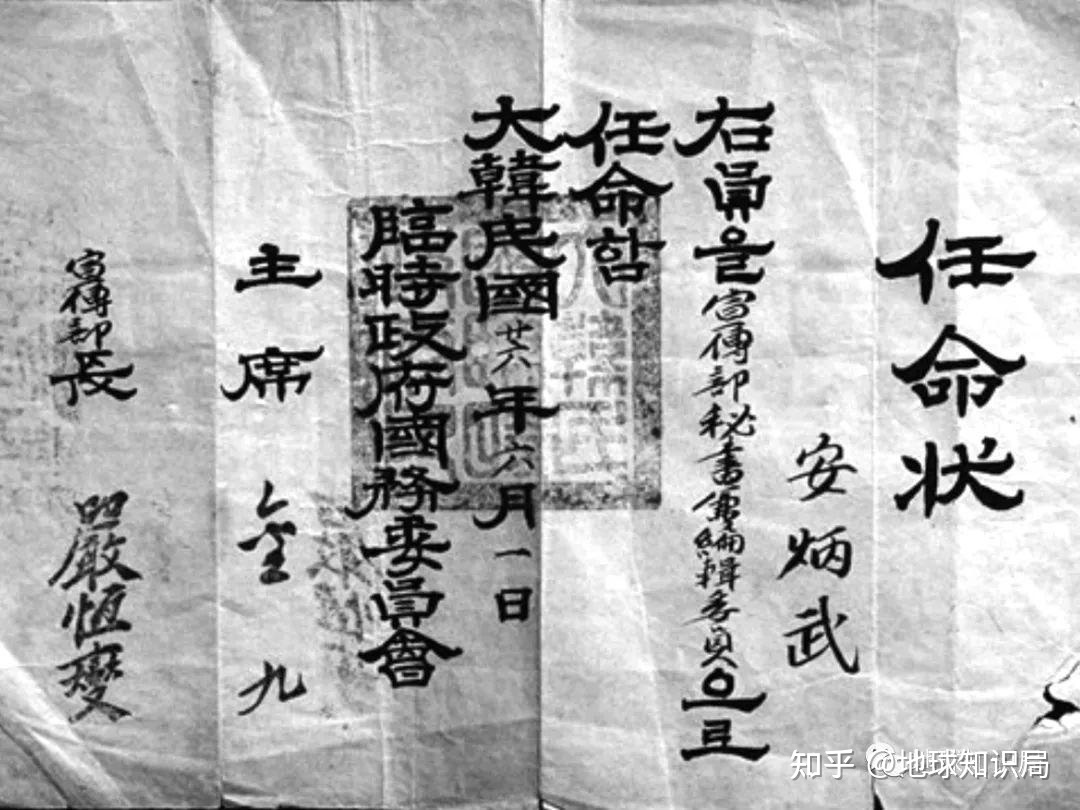 任命狀
安炳武
右員을宣傳部秘書兼編輯委員으로
任命함
大韓民國廿六年六月一日
臨時政府國務委員會
主席 金九
宣傳部長 嚴恒燮
知乎 @地球知识局